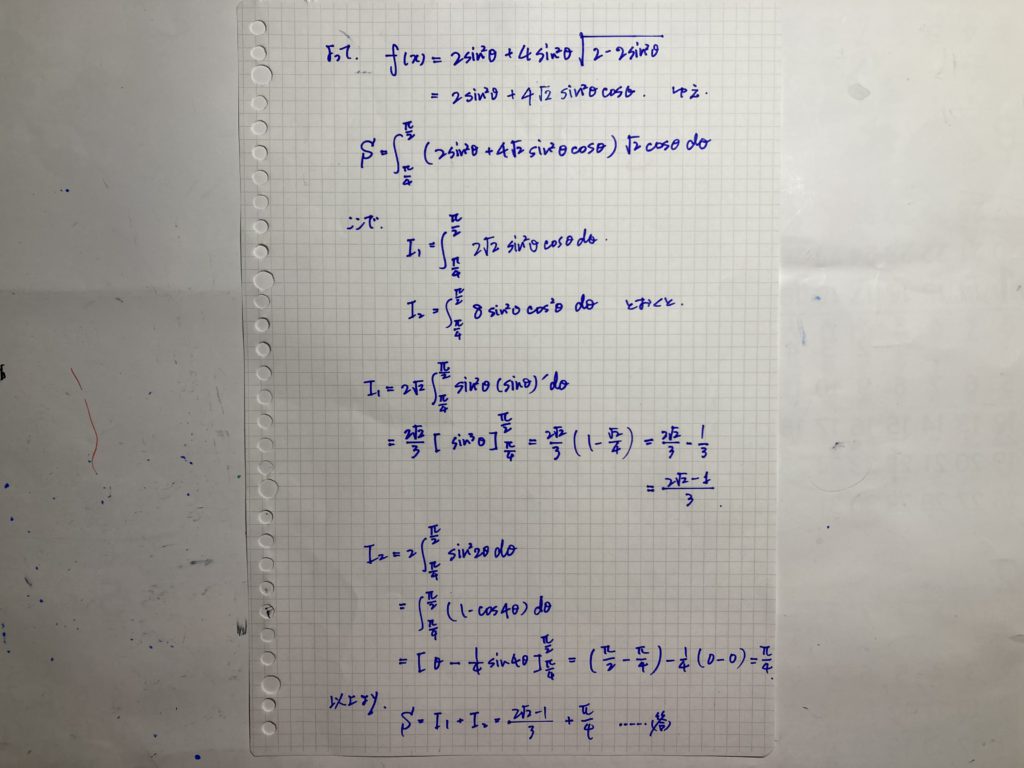 よって. f(x) = 2sin²θ + 4sin²θ√(2-2sin²θ)
= 2sin²θ + 4√2 sin²θcosθ. ゆえ.
S = ∫_{π/4}^{π/2} (2sin²θ + 4√2 sin²θcosθ) √2cosθ dθ
ここで.
I₁ = ∫_{π/4}^{π/2} 2√2 sin²θcosθdθ.
I₂ = ∫_{π/4}^{π/2} 8sin²θcos²θ dθ とおくと.
I₁ = 2√2 ∫_{π/4}^{π/2} sin²θ(sinθ)′dθ
= 2√2/3 [sin³θ]_{π/4}^{π/2} = 2√2/3 (1 - √2/4) = 2√2/3 - 1/3
= (2√2-1)/3
I₂ = 2∫_{π/4}^{π/2} sin²2θdθ
= ∫_{π/4}^{π/2} (1-cos4θ)dθ
= [θ - 1/4 sin4θ]_{π/4}^{π/2} = (π/2 - π/4) - 1/4(0-0) = π/4
以上より.
S = I₁ + I₂ = (2√2-1)/3 + π/4 ……(答)